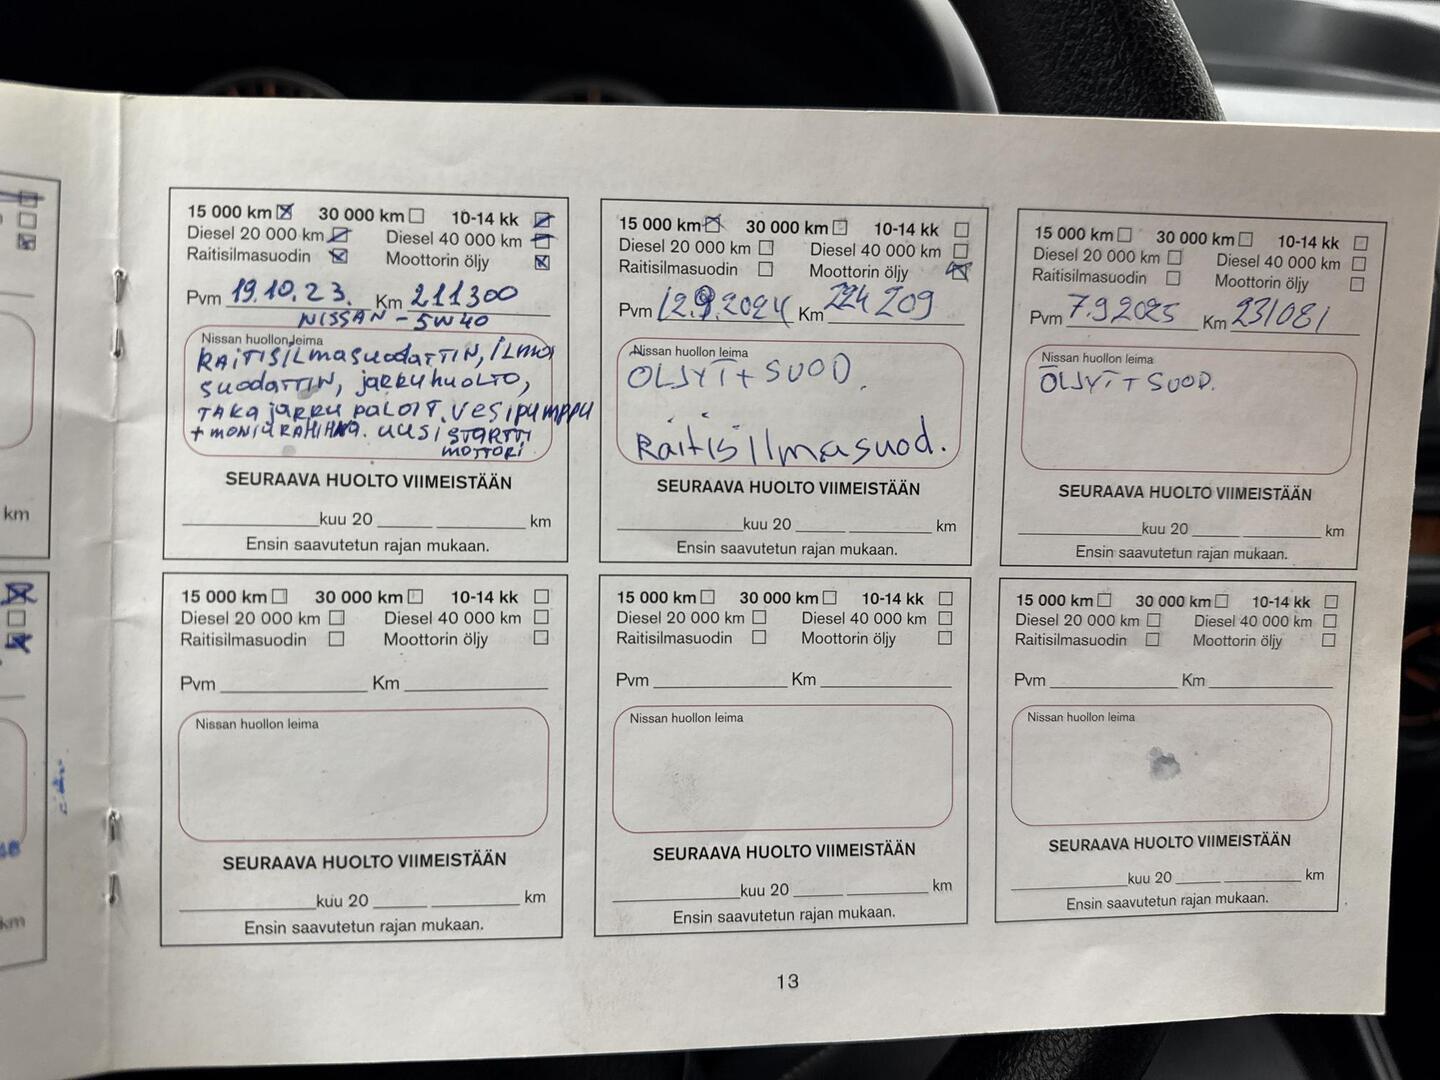 15 000 km 30 000 km 10-14 kk
Diesel 20 000 km Diesel 40 000 km
Raitisilmasuodin Moottorin öljy
Pvm 19.10.23. Km 211300
NISSAN - 5W40
Nissan huollon leima
RAITISILmasuodaTTIN, ILma
suodaTTIN, jaRRuhuolTO,
TAKA jaRRu paloiT. Vesipumppu
+ moniuRAHIHNA. uusi STARTTI
moTToRi
SEURAAVA HUOLTO VIIMEISTÄÄN
kuu 20 km
Ensin saavutetun rajan mukaan.
15 000 km 30 000 km 10-14 kk
Diesel 20 000 km Diesel 40 000 km
Raitisilmasuodin Moottorin öljy
Pvm 12.9.2024 Km 224 209
Nissan huollon leima
ÖLJYT + SUOD.
Raitisilmasuod.
SEURAAVA HUOLTO VIIMEISTÄÄN
kuu 20 km
Ensin saavutetun rajan mukaan.
15 000 km 30 000 km 10-14 kk
Diesel 20 000 km Diesel 40 000 km
Raitisilmasuodin Moottorin öljy
Pvm 7.9.2025 Km 231081
Nissan huollon leima
ÖLJYT + SUOD.
SEURAAVA HUOLTO VIIMEISTÄÄN
kuu 20 km
Ensin saavutetun rajan mukaan.
15 000 km 30 000 km 10-14 kk
Diesel 20 000 km Diesel 40 000 km
Raitisilmasuodin Moottorin öljy
Pvm Km
Nissan huollon leima
SEURAAVA HUOLTO VIIMEISTÄÄN
kuu 20 km
Ensin saavutetun rajan mukaan.
15 000 km 30 000 km 10-14 kk
Diesel 20 000 km Diesel 40 000 km
Raitisilmasuodin Moottorin öljy
Pvm Km
Nissan huollon leima
SEURAAVA HUOLTO VIIMEISTÄÄN
kuu 20 km
Ensin saavutetun rajan mukaan.
15 000 km 30 000 km 10-14 kk
Diesel 20 000 km Diesel 40 000 km
Raitisilmasuodin Moottorin öljy
Pvm Km
Nissan huollon leima
SEURAAVA HUOLTO VIIMEISTÄÄN
kuu 20 km
Ensin saavutetun rajan mukaan.
13
km
km